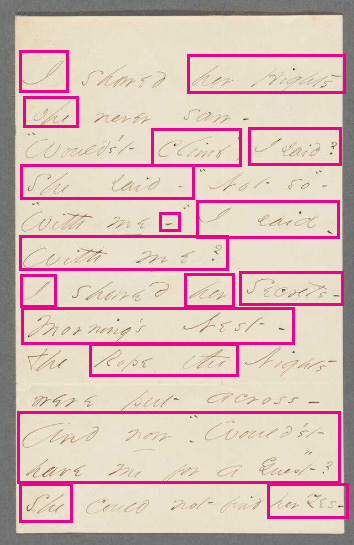 I showed her Hights
She never saw -
"Would'st Climb", I said?
She said - "Not so" -
"With me -" I said -
With me?
I showed her Secrets -
Morning's Nest -
The Rope the Nights
were put across -
And now - "Would'st
have me for a Guest"?
She could not find her Yes -